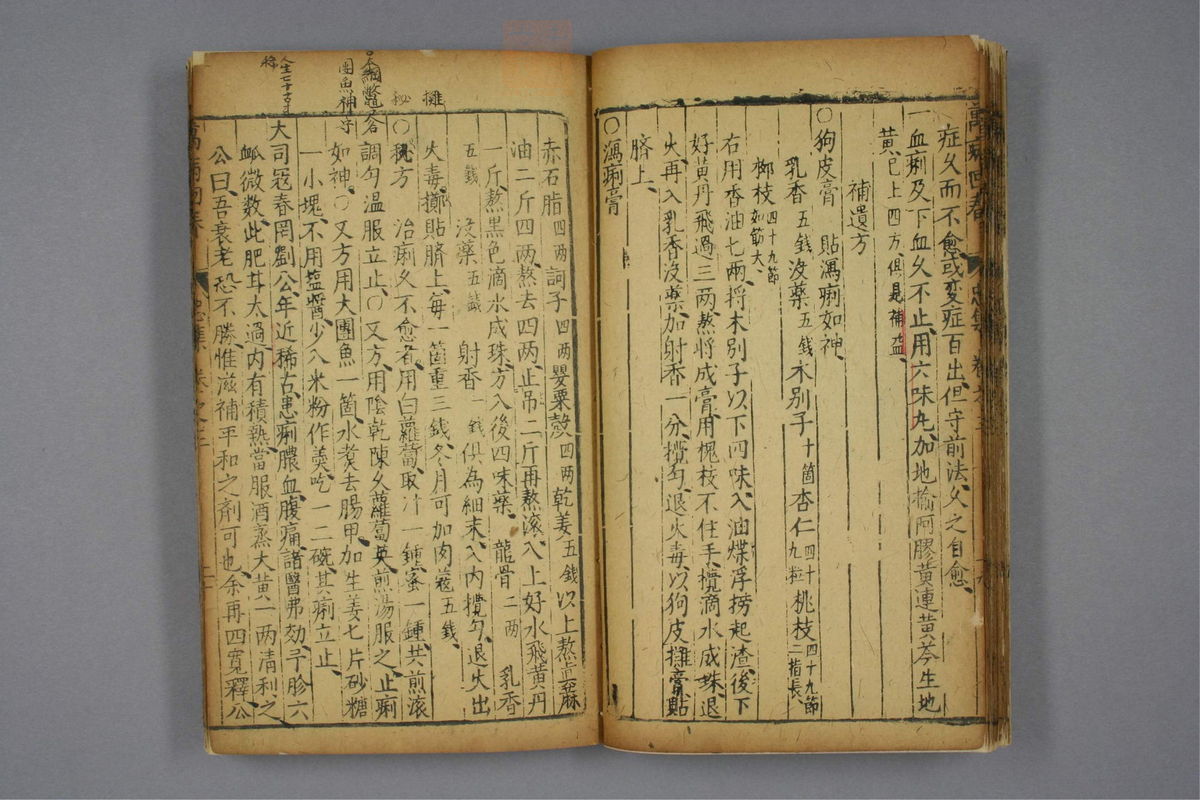 症久而不愈或变症百出但守前法久之自愈
一血痢及下血久不止用六味丸加地榆阿膠黄連黄芩生地
黄已上四方俱是補益
補遺方
○狗皮膏 貼瀉痢如神
乳香五錢没藥五錢木別子十箇杏仁四十九粒桃枝四十九節二指長
栁枝四十九節如筯大
右用香油七兩将木別子以下四味入油煠浮捞起渣後下
好黄丹飛過三两熬将成膏用槐枝不住手攪滴水成珠退
火再入乳香没藥加射香一分攪匀退火毒以狗皮攤膏貼
臍上
○瀉痢膏
赤石脂四两訶子四两罌粟殼四两乾姜五錢以上熬真麻
油二斤四两熬去四两止吊二斤再熬滚入上好水飛黄丹
一斤熬黒色滴水成珠方入後四味藥 龍骨二两 乳香
五錢 没藥五錢 射香一錢俱為細末入内攪匀退火出
火毒擲貼臍上每一箇重三錢冬月可加肉蔻五錢
○秘方 治痢久不愈者用白蘿蔔取汁一鍾蜜一鍾共煎滚
調匀温服立止○又方用陰乾陳久蘿蔔英煎湯服之止痢
如神○又方用大團魚一箇水煮去腸甲加生姜七片砂糖
一小塊不用盐醬少入米粉作羮吃一二碗其痢立止
大司冦春岡劉公年近稀古患痢膿血腹痛諸醫弗効予胗六
䘑微数此肥甘太過内有積熱當服酒蒸大黄一两清利之
公曰吾衰老恐不勝惟滋補平和之剤可也余再四寛釋公
萬病回春
忠集 卷之三
攤
秘
團魚神方
人生七十古才
稀